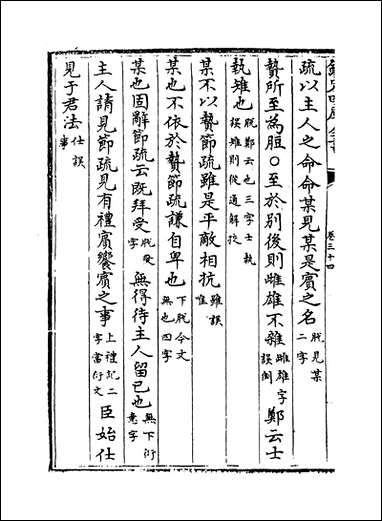 欽定四庫全書 卷三十四
疏以主人之命命某見某是賓之名脱見某二字
贄所至為脰○至於別後則雌雄不雜雌雄字誤倒鄭云士
執雉也脱鄭云也三字士執誤雉則從通解挍
某不以贄節疏雖是平敵相抗雖誤惟
某也不依於贄節疏謙自卑也下脱今文無也四字
某也固辭節疏云既拜受脱受字無得待主人留已也無下衍意字
主人請見節疏見有禮賓饗賓之事上禮記二字當衍文臣始仕
見于君法仕誤事